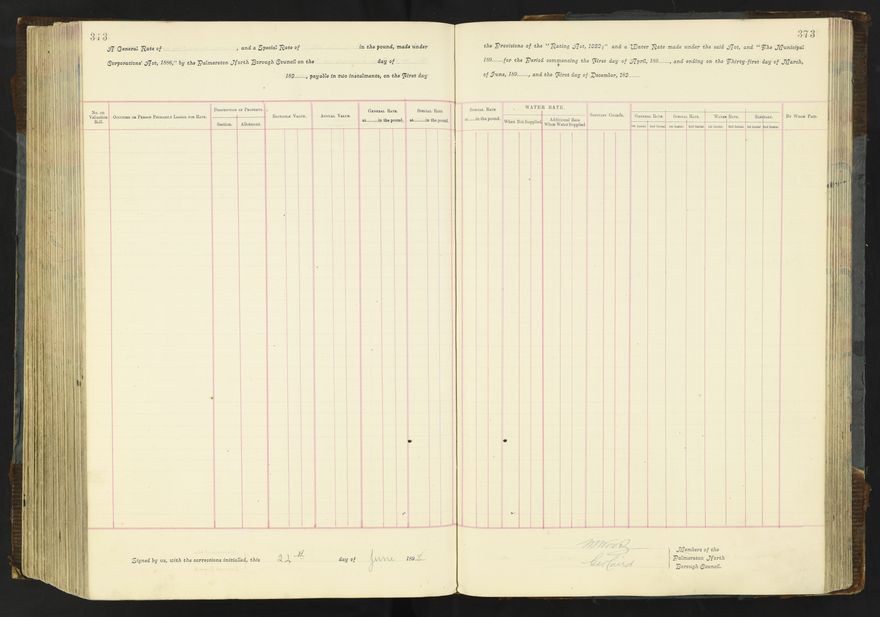 373
A General Rate of , and a Special Rate of in the pound, made under
Corporations' Act, 1886," by the Palmerston North Borough Council on the day of
189 , payable in two instalments, on the First day
No. on Valuation Roll.
Occupier or Person Primarily Liable for Rate.
Description of Property.
Section.
Allotment.
Rateable Value.
Annual Value.
General Rate
at in the pound.
Special Rate
at in the pound.
Signed by us, with the corrections initialled, this 22nd day of June 189
373
the Provisions of the "Rating Act, 1882;" and a Water Rate made under the said Act, and "The Municipal
189 for the Period commencing the First day of April, 189 , and ending on the Thirty-first day of March,
of June, 189 , and the First day of December, 189
Special Rate
at in the pound.
WATER RATE.
When Not Supplied.
Additional Rate When Water Supplied.
Sanitary Charge.
General Rate.
Special Rate.
Water Rate.
Sanitary.
By Whom Paid.
Members of the
Palmerston North
Borough Council.